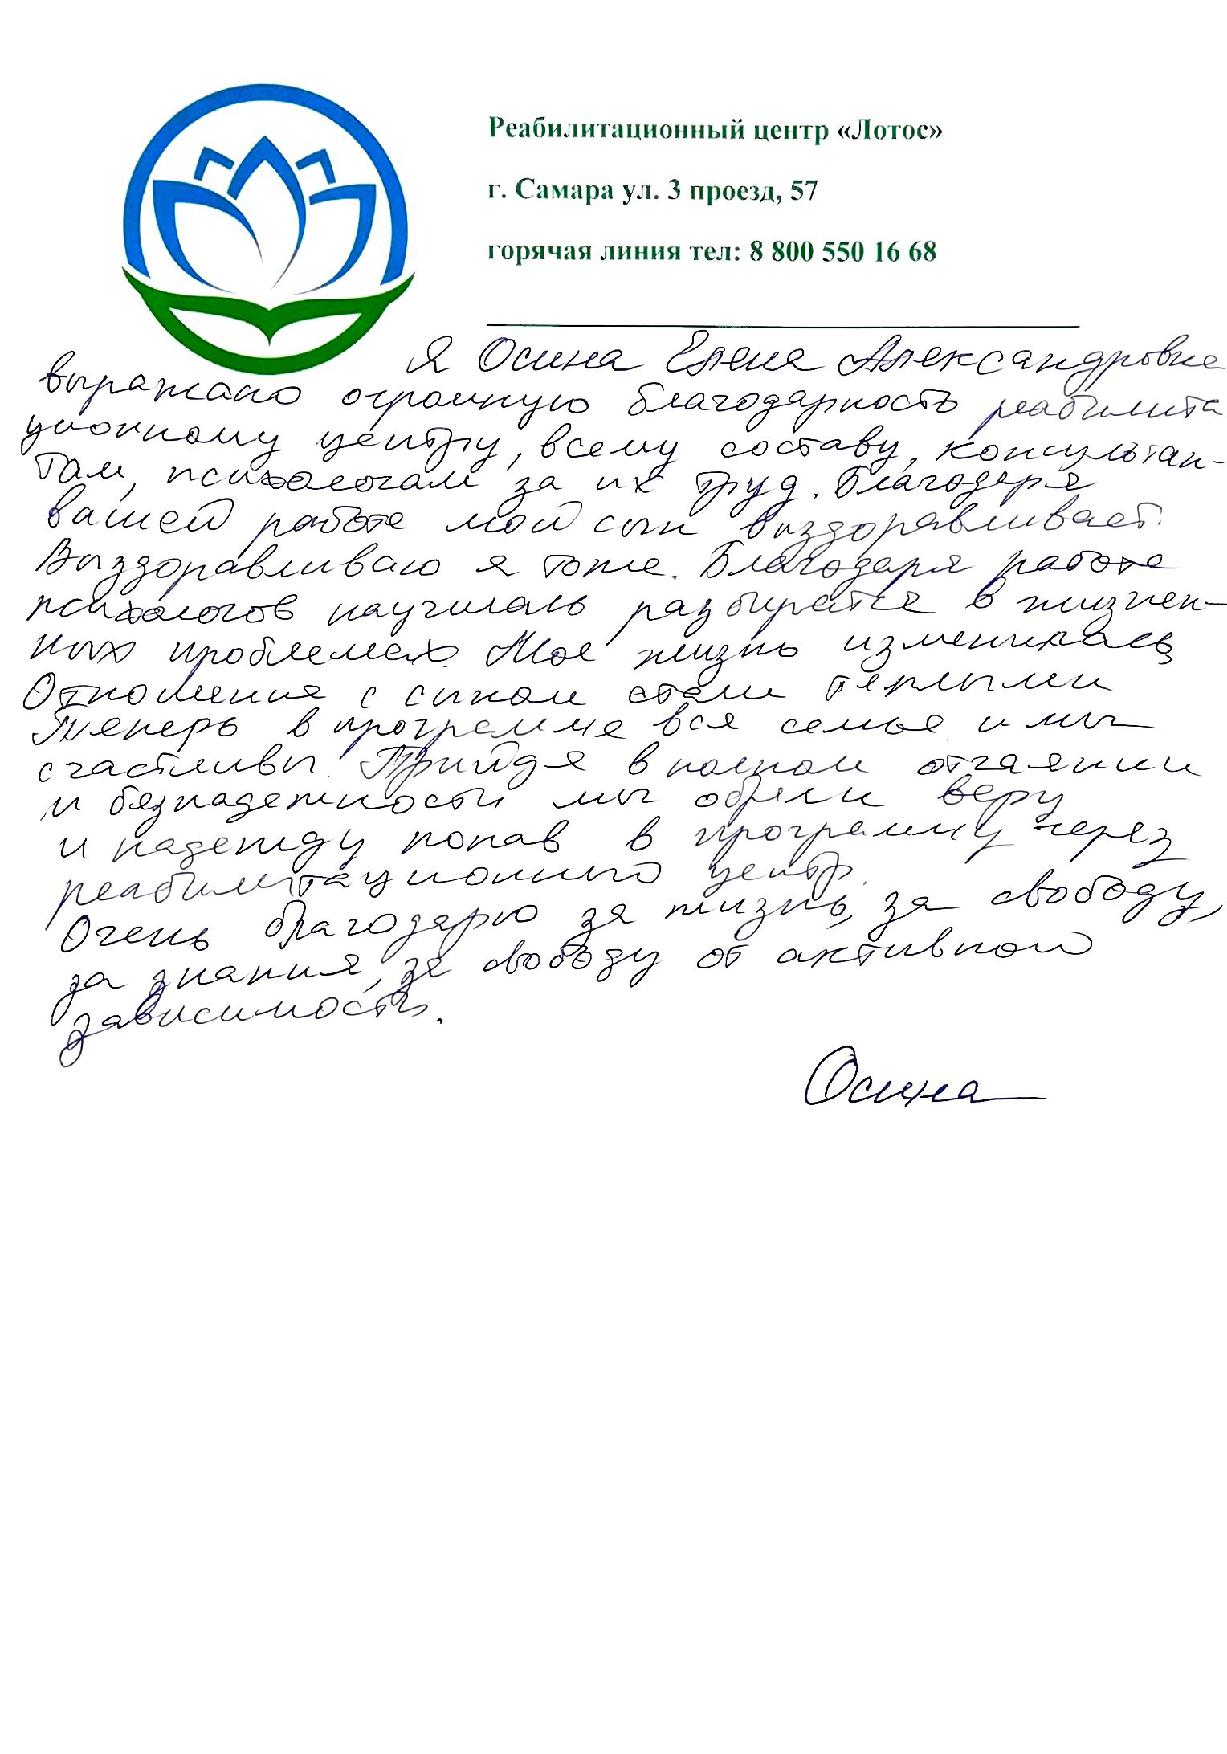 Реабилитационный центр «Лотос»
г. Самара ул. 3 проезд, 57
горячая линия тел: 8 800 550 16 68
Я Осина Елена Александровна
выражаю огромную благодарность реабилита
ционному центру, всему составу, консультан-
там, психологам за их труд. Благодаря
вашей работе мой сын выздоравливает.
Выздоравливаю я тоже. Благодаря работе
психологов научилась разбиратся в жизнен-
ных проблемах. Моя жизнь изменилась
Отношения с сыном стали теплыми
Теперь в программе вся семья и мы
счастливы. Прийдя в полном отчаянии
и безнадежности мы обрели веру
и надежду попав в программу через
реабилитационного центр.
Очень благодарю за жизнь, за свободу,
за знания, за свободу от активной
зависимости.
Осина